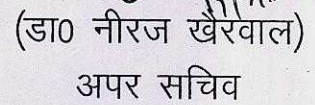 (डा0 नीरज खैरवाल)
अपर सचिव